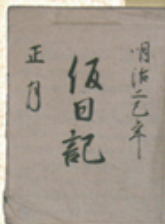 明治二己年
仮日記
正月